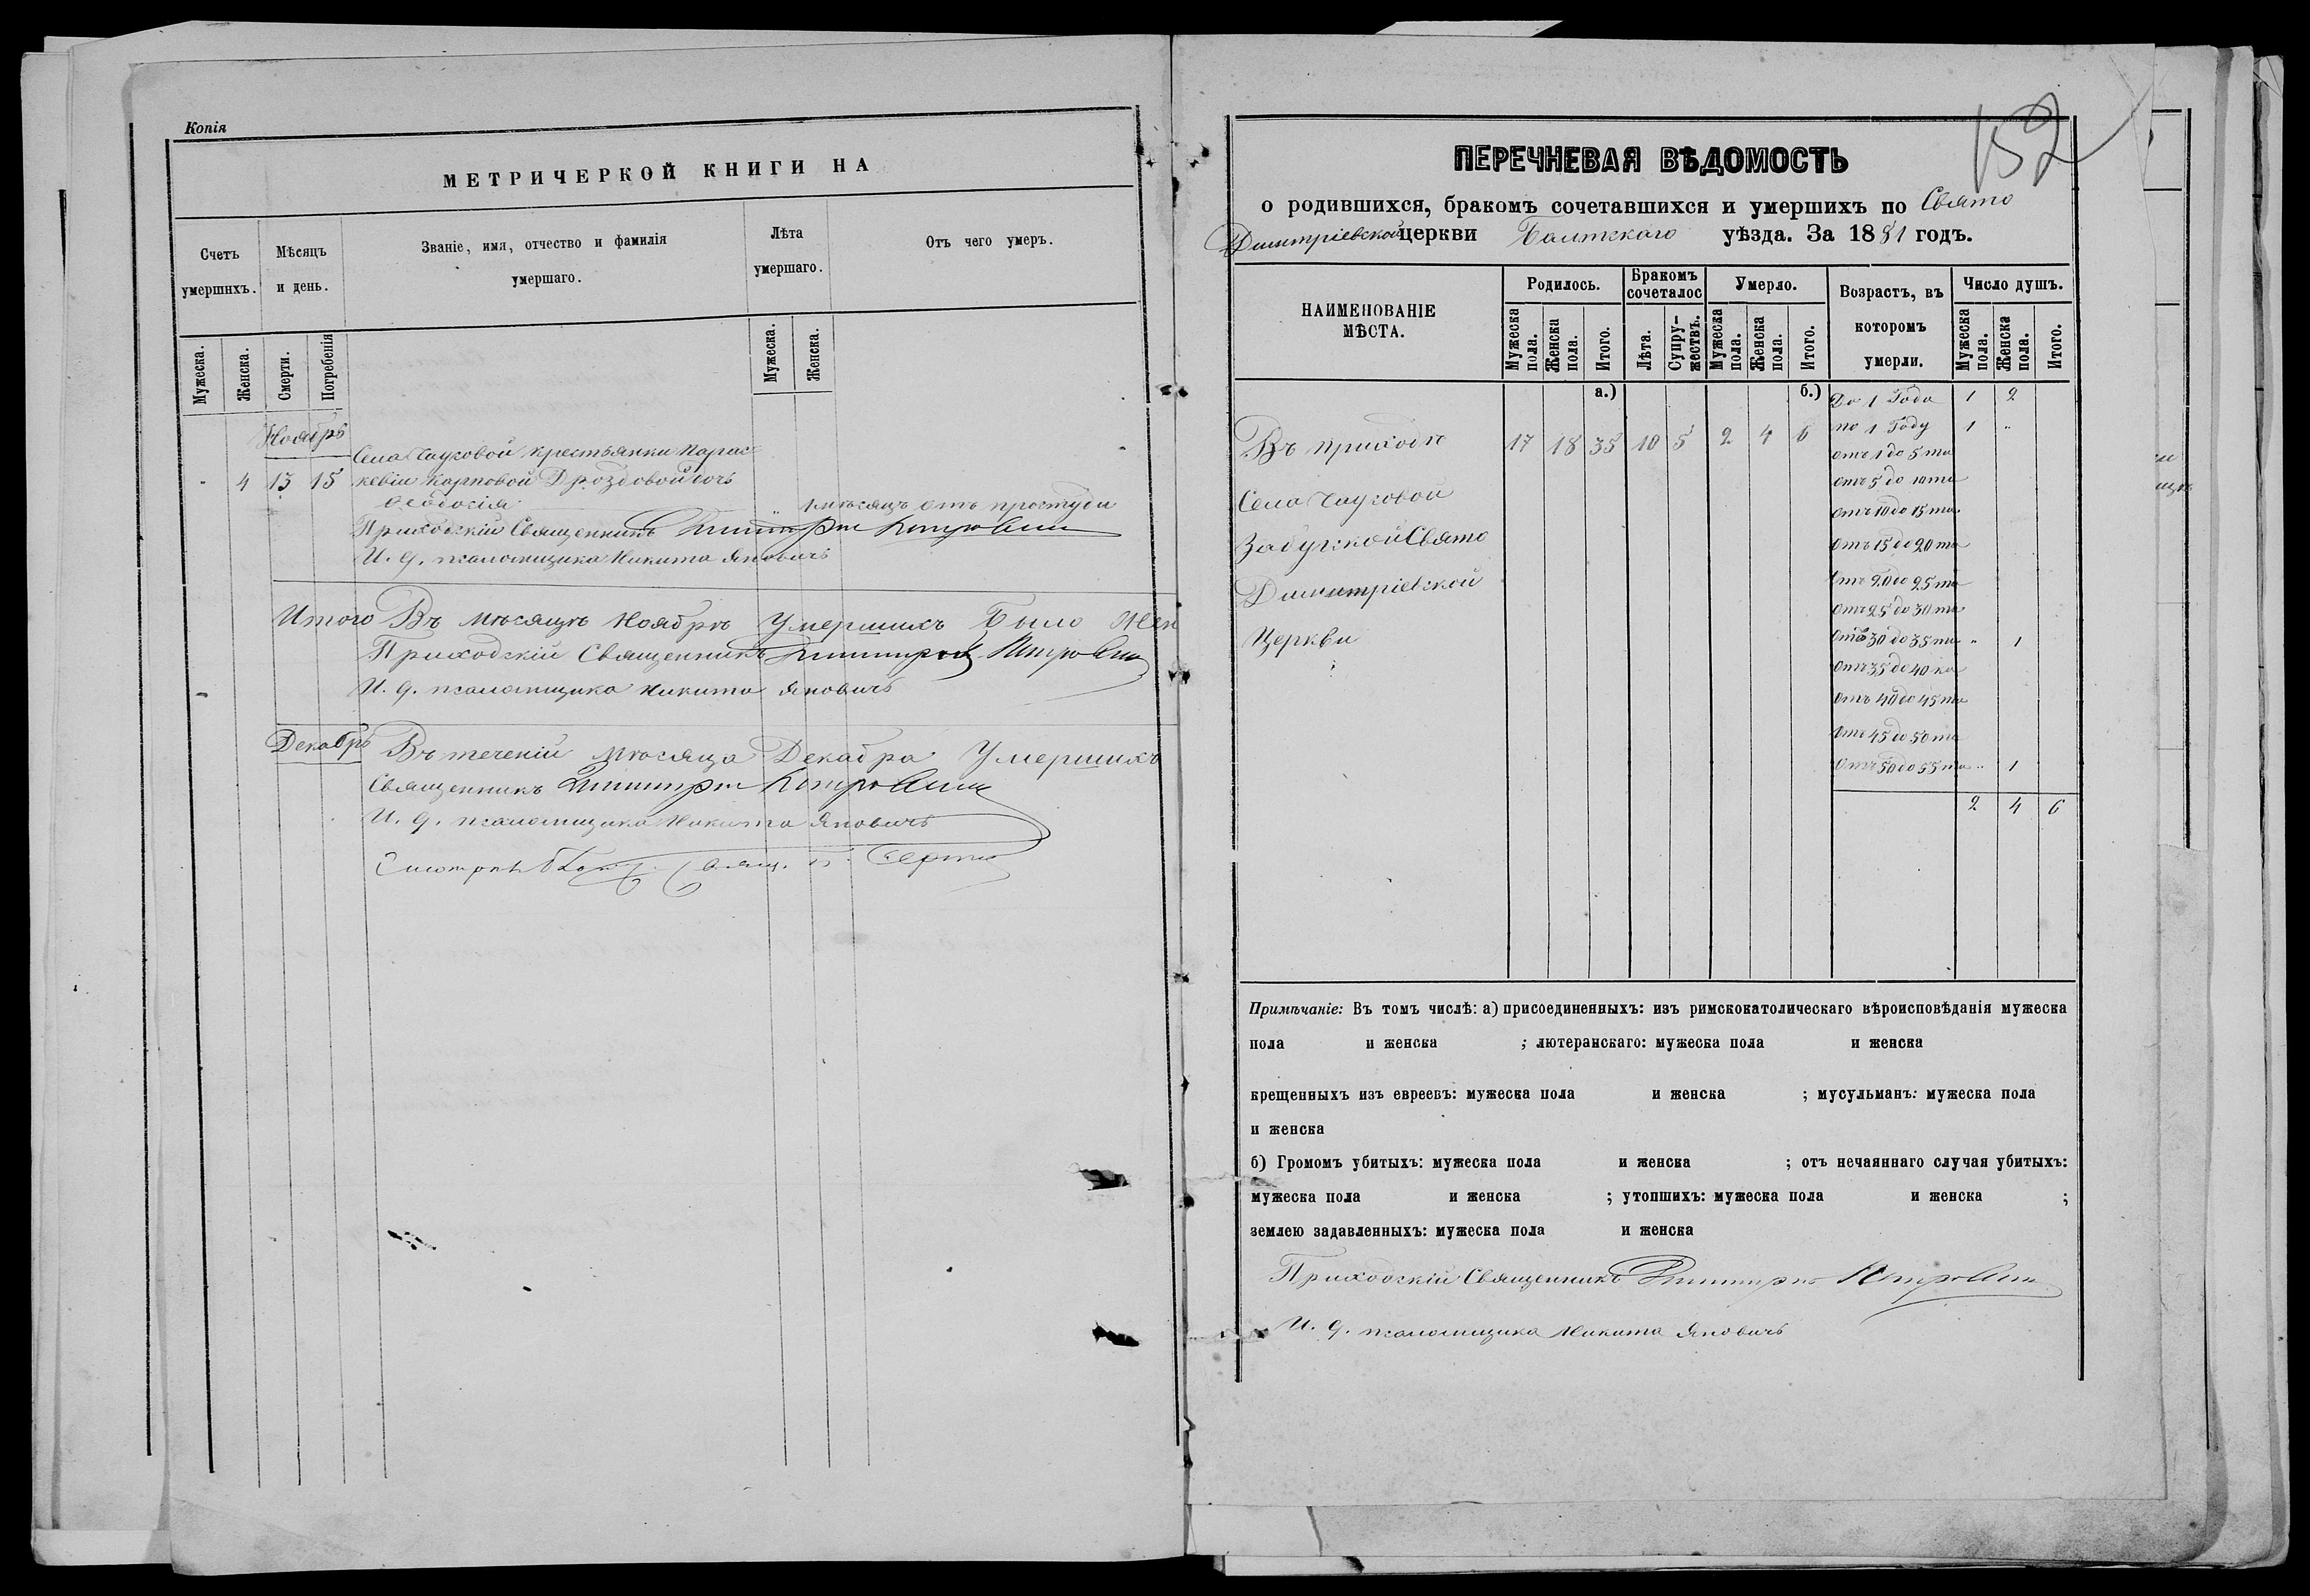 Копія
МЕТРИЧЕРКОЙ КНИГИ НА
Счетъ умершихъ.
Мѣсяцъ и день.
Званіе, имя, отчество и фамилія умершаго.
Лѣта умершаго.
Отъ чего умеръ.
Мужеска.
Женска.
Смерти.
Погребенія
Мужеска.
Женска.
Ноябрь
Села Чаусовой крестьянки Парас
- 4 13 15 кевіи Карповой Дроздовой дочь
Ѳеодосія „ 1 мѣсяцъ отъ простуды
Приходскій Священникъ Димитрій
И. д. псаломщика Никита Яновичъ
Итого Въ мѣсяцѣ Ноябрѣ Умершихъ Было
Приходскій Священникъ Димитрій
И. д. псаломщика Никита Яновичъ
Декабрь Въ теченіи мѣсяца Декабра Умершихъ
Священникъ Димитрій
И. д. псаломщика Никита Яновичъ
152
ПЕРЕЧНЕВАЯ ВѢДОМОСТЬ
о родившихся, бракомъ сочетавшихся и умершихъ по Свято
Димитріевской церкви Балтскаго уѣзда. За 1881 годъ.
НАИМЕНОВАНІЕ МѢСТА.
Родилось.
Бракомъ сочеталос
Умерло.
Возрастъ, въ котоromъ умерли.
Число душъ.
Мужеска пола.
Женска пола.
Итого.
Лѣта.
Супружествъ.
Мужеска пола.
Женска пола.
Итого.
Мужеска пола.
Женска пола.
Итого.
а.) б.)
До 1 Года 1 2
Въ приходѣ 17 18 35 10 5 2 4 6 по 1 Году 1 „
отъ 1 до 5 ти
отъ 5 до 10 ти
Села Чаусовой отъ 10 до 15 ти
Забужской Свято отъ 15 до 20 ти
Димитріевской отъ 20 до 25 ти
отъ 25 до 30 ти
Церкви отъ 30 до 35 ти „ 1
отъ 35 до 40 ка
отъ 40 до 45 ти
отъ 45 до 50 ти
отъ 50 до 55 ти „ 1
2 4 6
Примѣчаніе: Въ томъ числѣ: а) присоединенныхъ: изъ римскокатолическаго вѣроисповѣданія мужеска
пола и женска ; лютеранскаго: мужеска пола и женска
крещенныхъ изъ евреевъ: мужеска пола и женска ; мусульманъ: мужеска пола
и женска
б) Громомъ убитыхъ: мужеска пола и женска ; отъ нечаяннаго случая убитыхъ:
мужеска пола и женска ; утопшихъ: мужеска пола и женска ;
землею задавленныхъ: мужеска пола и женска
Приходскій Священникъ Димитрій
И. д. псаломщика Никита Яновичъ